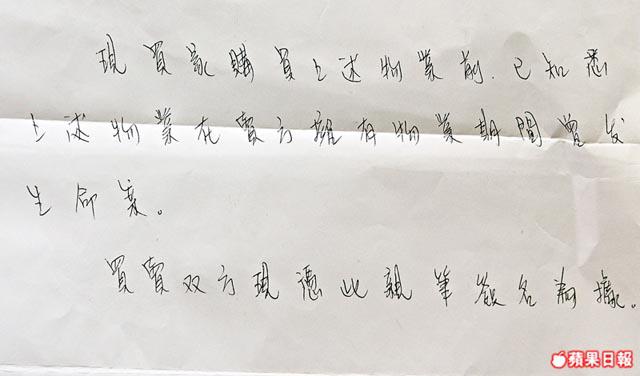 現買家購買上述物業前.已知悉
上述物業在賣方擁有物業期間曾发
生命案。
買賣双方現憑此親筆簽名為據。
蘋果日報